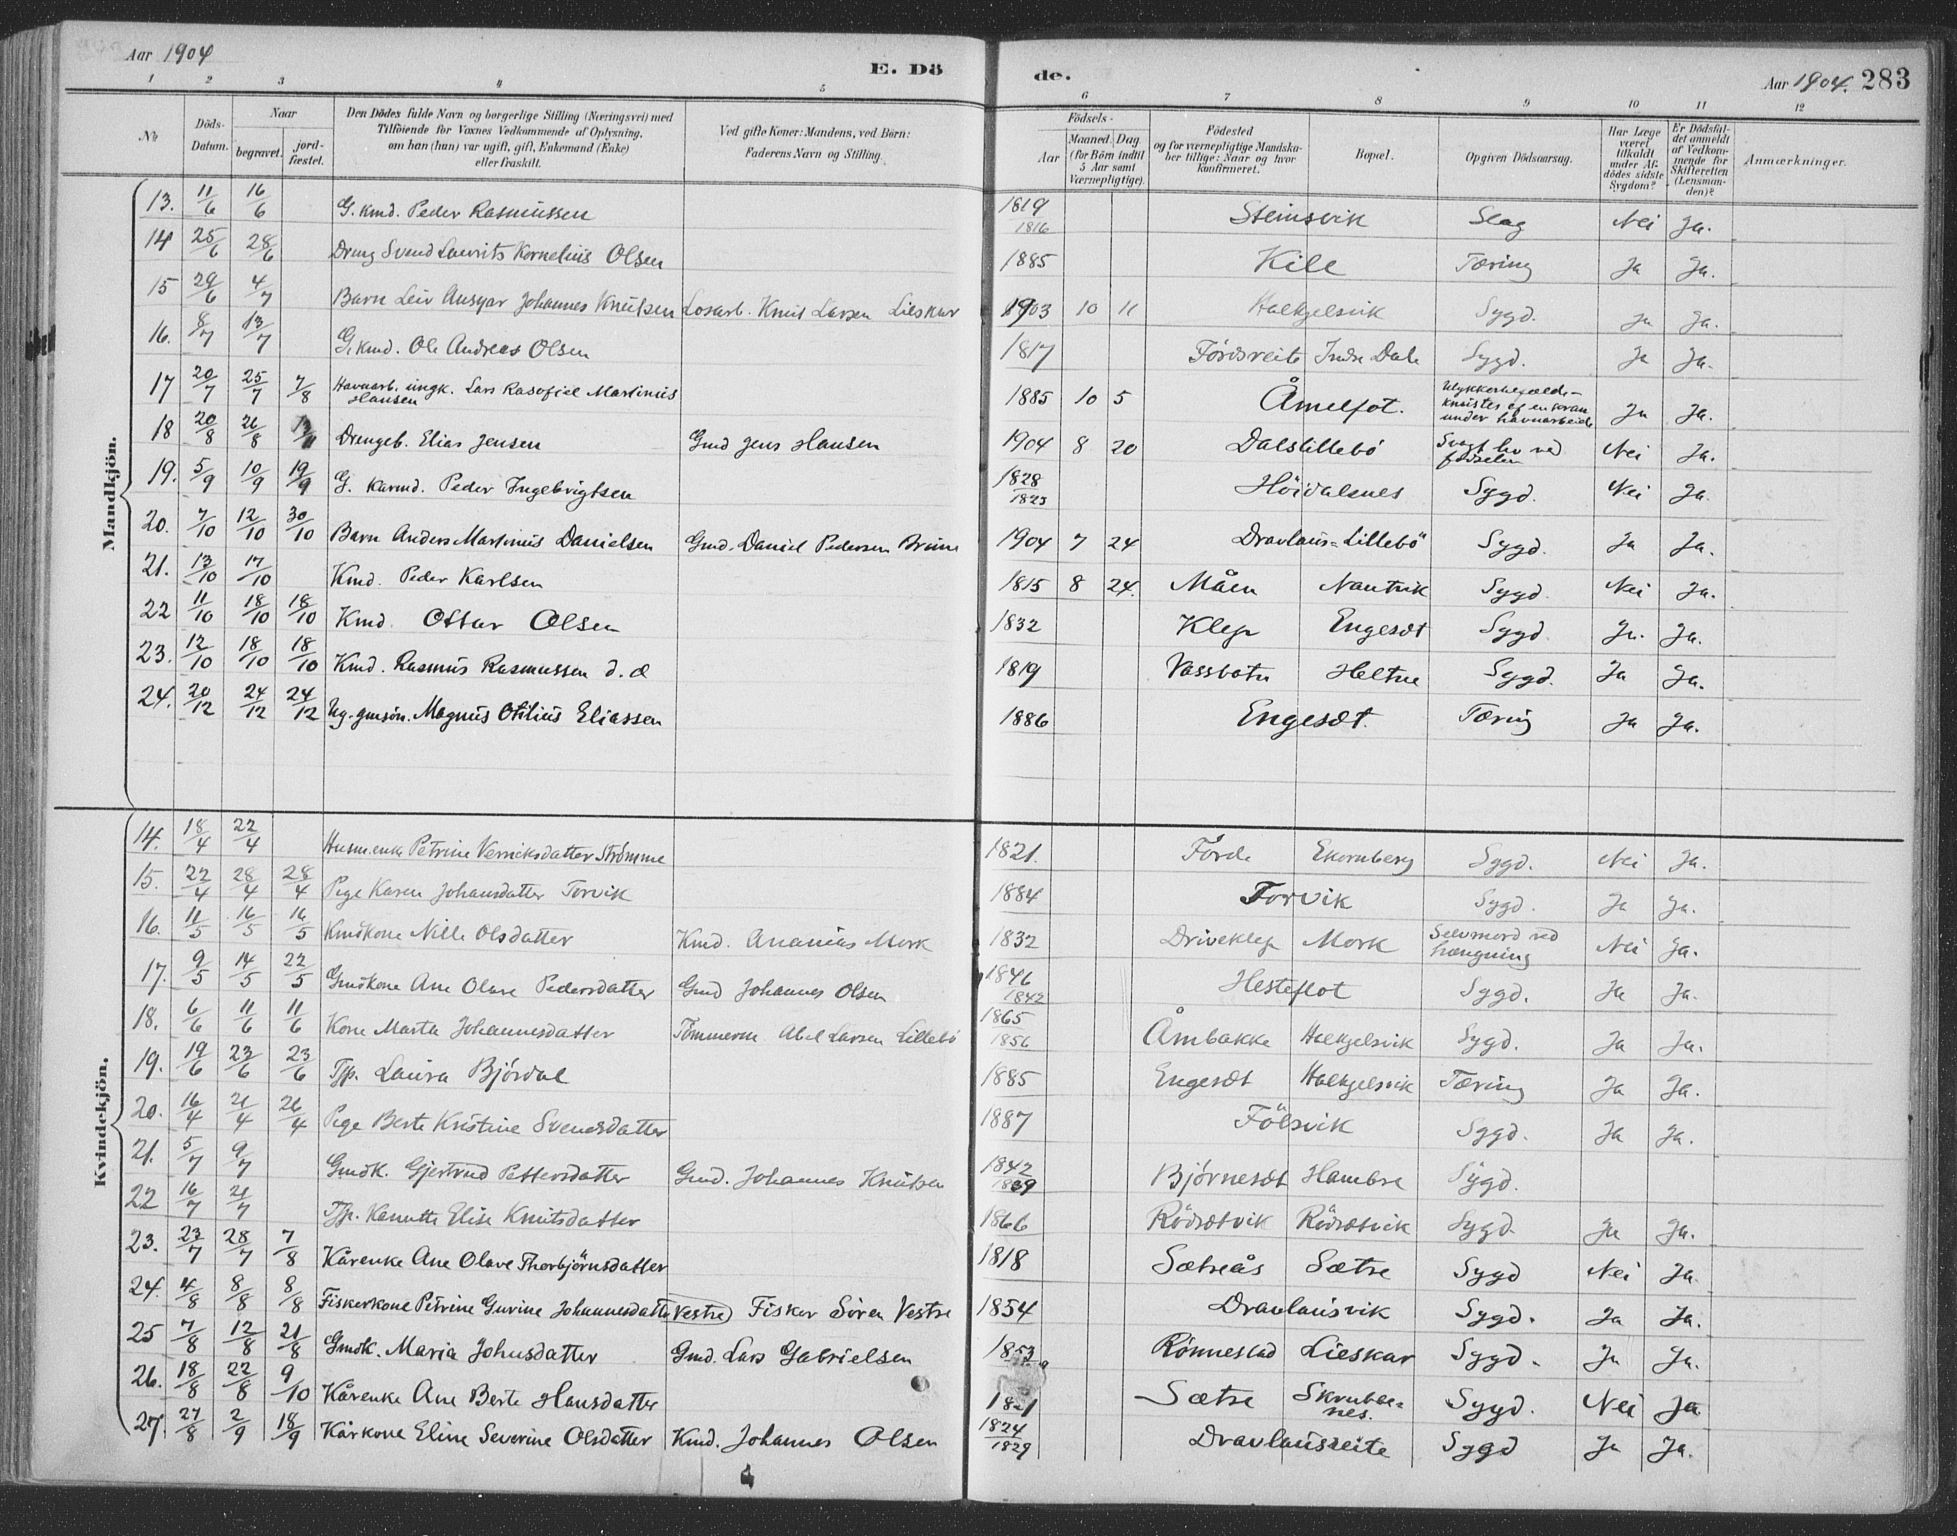 Aar 1904
E. Dö
de.
Aar 1904. 283
1 2 3 4 5 6 7 8 9 10 11 12
№
Döds-Datum.
Naar
begravet.
jord-fæstet.
Den Dödes fulde Navn og borgerlige Stilling (Næringsvei) med
Tilföiende for Voxnes Vedkommende af Oplysning,
om han (hun) var ugift, gift, Enkemand (Enke)
eller fraskilt.
Ved gifte Koner: Mandens, ved Börn:
Faderens Navn og Stilling.
Födsels-
Aar
Maaned. Dag
(for Börn indtil
5 Aar samt
Værnepligtige).
Födested
og for værnepligtige Mandska-
ber tillige: Naar og hvor
konfirmeret.
Bopæl.
Opgiven Dödsaarsag.
Har Læge
været
tilkaldt
under Af-
dödes sidste
Sygdom?
Er Dödsfal-
det anmeldt
af Vedkom-
mende for
Skifteretten
(Lensman-
den)?
Anmærkninger.
Mandkjön.
13. 11/6 16/6 G. kmd. Peder Rasmussen 1819 1816 Steinsvik Slag Nei Ja.
14 25/6 28/6 Dreng Svend Laurits Kornelius Olsen 1885 Kile Tæring Ja Ja.
15 29/6 4/7 Barn Leiv Ansgar Johannes Knutsen Losarb. Knut Larsen Lieskar 1903 10 11 Halkjelsvik Sygd. Ja Ja.
16. 8/7 13/7 G. kmd. Ole Andreas Olsen 1817 Fördsreite Indre Dale Sygd. Ja Ja.
17 20/7 25/7 7/8 Havnarb. ungk. Lars Rasofiel Martinius Hansen 1885 10 5 Åmelfot. Ulykkeshendelde- knustes af en kran under havnarbeide Ja Ja.
18 20/8 26/8 Drengeb. Elias Jensen Gmd Jens Hansen 1904 8 20 Dalslillebö Svagt liv ved födselen Nei Ja.
19. 5/9 10/9 19/9 G. Kaarmd. Peder Ingebrigtsen 1828 1823 Höidalsnes Sygd. Nei Ja.
20. 7/10 12/10 30/10 Barn Anders Martinius Danielsen Gmd. Daniel Pedersen Brune 1904 7 24 Dravlaus-Lillebö Sygd. Ja Ja.
21. 13/10 17/10 Kmd. Peder Karlsen 1815 8 24. Måen Nautvik Sygd. Nei Ja.
22 11/10 18/10 18/10 Kmd. Ottar Olsen 1832 Klep Engesæt Sygd. Ja. Ja.
23. 12/10 18/10 18/10 Kmd. Rasmus Rasmussen d.æ 1819 Vassbotn Heltne Sygd. Ja Ja.
24. 20/12 24/12 24/12 Ug. gmsön. Magnus Otilius Eliassen 1886 Engesæt. Tæring Ja Ja.
Kvindekjön.
14. 18/4 22/4 Husm.enke Petrine Verniksdatter Strömme 1821. Förde Ekornberg Sygd. Nei Ja.
15. 22/4 28/4 28/4 Pige Karen Johansdatter Torvik 1884 Torvik Sygd. Ja Ja.
16. 11/5 16/5 16/5 Kmdkone Nille Olsdatter Kmd. Ananias Mork 1832 Driveklep Mork Selvmord ved hængning Nei Ja.
17. 9/5 14/5 22/5 Gmdkone Ane Olave Pedersdatter Gmd Johannes Olsen 1846 1842 Hesteflot Sygd. Ja Ja.
18. 6/6 11/6 11/6 Kone Marta Johannesdatter Tömmerm Abel Larsen Lillebö 1865 1856 Åmbakke Halkjelsvik Sygd. Ja Ja.
19. 19/6 23/6 23/6 Tjp. Laura Björdal 1885 Engesæt Halkjelsvik Tæring Ja Ja.
20. 16/4 21/4 26/4 Pige Berte Kristine Svendsdatter 1887 Fölsvik Sygd. Ja Ja.
21. 5/7 9/7 Gmdk. Gjertrud Pettersdatter Gmd. Johannes Knutsen 1842 1839 Björnesæt Hambre Sygd.
22 16/7 21/7 Tjp. Kanutte Elise Knutsdatter 1866 Rödsætvik Rödsætvik Sygd. Ja Ja.
23. 23/7 28/7 7/8 Kårenke Ane Olave Thorbjörnsdatter 1818 Sætreås Sætre Sygd Nei Ja
24. 4/8 8/8 8/8 Fiskerkone Petrine Gurine Johannesdatter (Vestre) Fisker Sören Vestre 1854 Dravlausvik Sygd. Ja Ja.
25 7/8 12/8 21/8 Gmdk. Maria Johnsdatter Gmd. Lars Gabrielsen 1853 Rönnestad Lieskar Sygd. Ja Ja.
26. 18/8 22/8 9/10 Kårenke Ane Berte Hansdatter 1821 Sætre Skrubbe-nes. Sygd. Nei Ja
27. 27/8 2/9 18/9 Kårkone Eline Severine Olsdatter Kmd. Johannes Olsen 1824 1829 Dravlausreite Sygd Ja Ja.